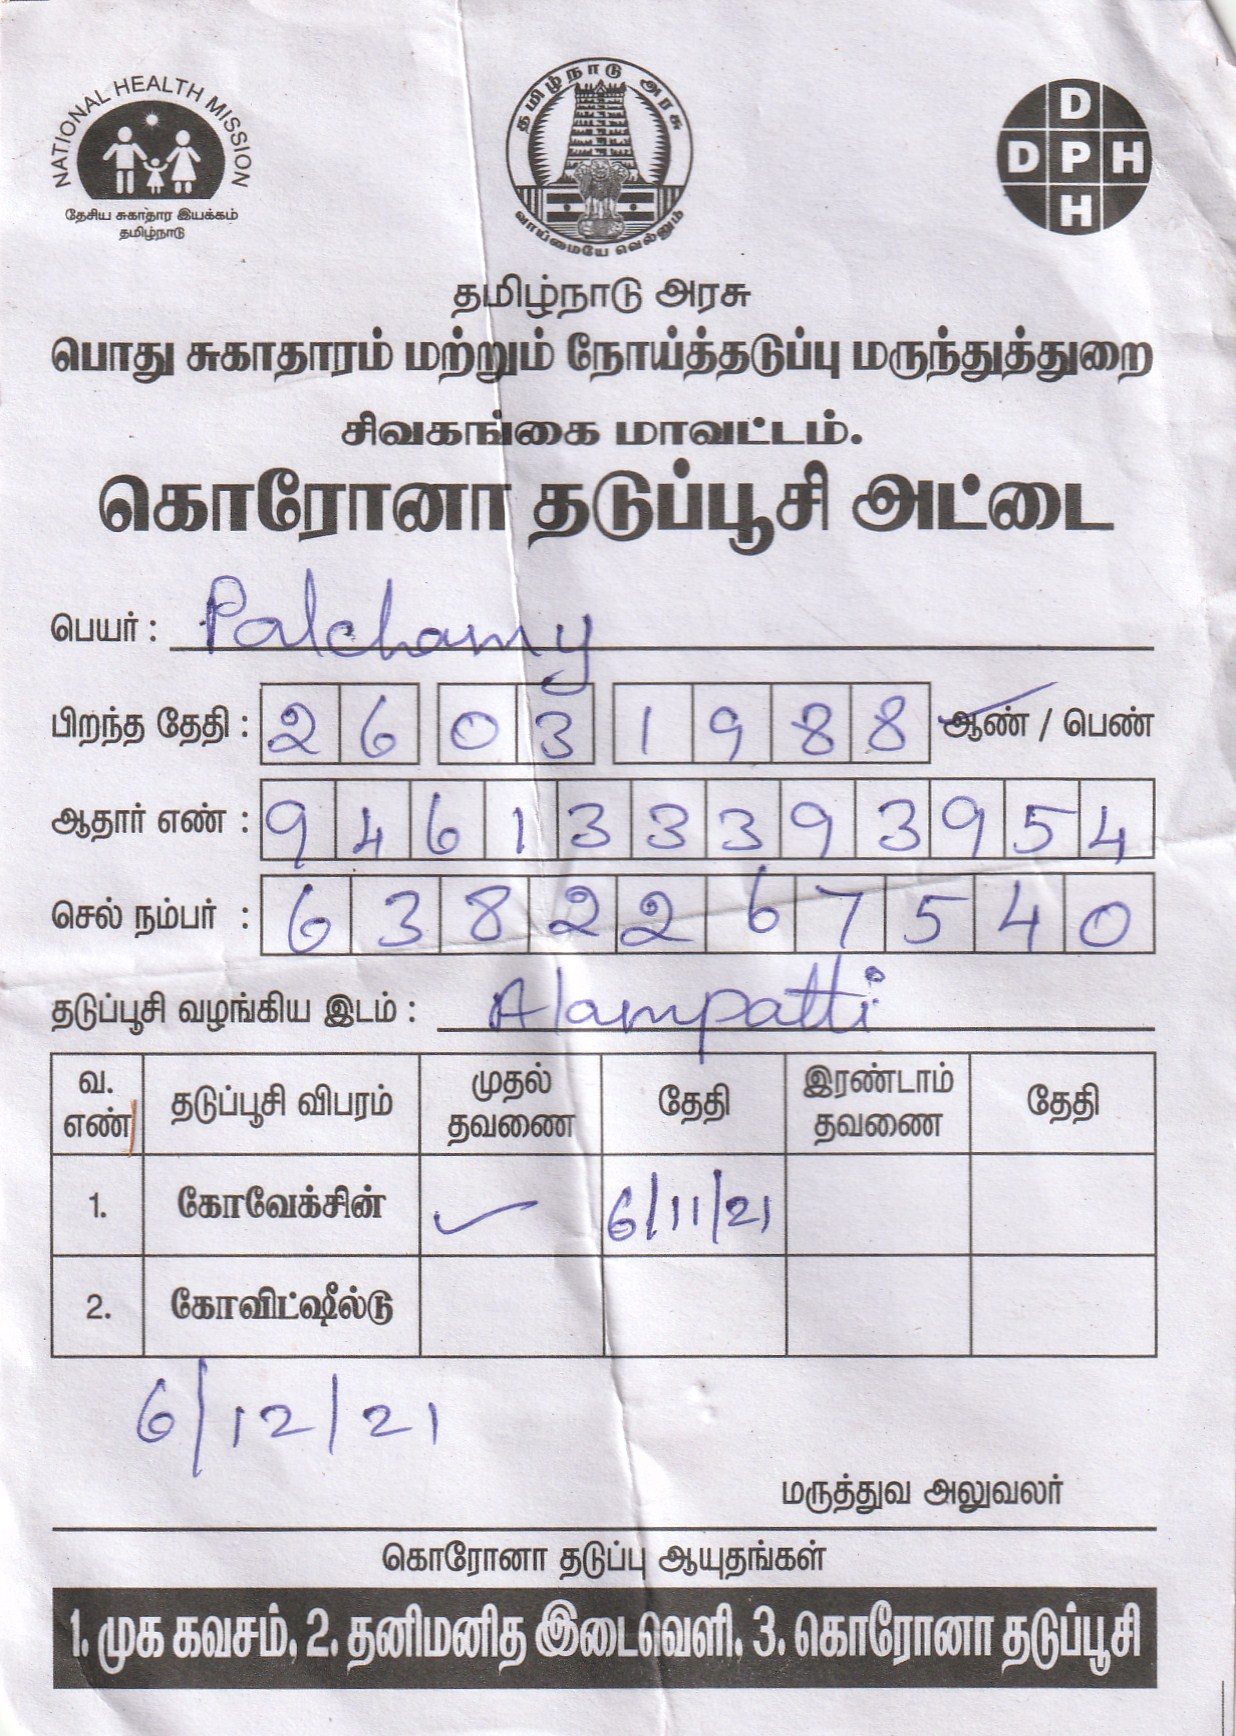 NATIONAL HEALTH MISSION
தேசிய சுகாதார இயக்கம்
தமிழ்நாடு
தமிழ்நாடு அரசு
வாய்மையே வெல்லும்
D
D P H
H
தமிழ்நாடு அரசு
பொது சுகாதாரம் மற்றும் நோய்த்தடுப்பு மருந்துத்துறை
சிவகங்கை மாவட்டம்.
கொரோனா தடுப்பூசி அட்டை
பெயர் : Palchamy
பிறந்த தேதி : 26 03 1988 ஆண் / பெண்
ஆதார் எண் : 946133393954
செல் நம்பர் : 6382267540
தடுப்பூசி வழங்கிய இடம் : Alampatti
வ. எண் தடுப்பூசி விபரம் முதல் தவணை தேதி இரண்டாம் தவணை தேதி
1. கோவேக்சின் ✓ 6/11/21
2. கோவிட்ஷீல்டு
6/12/21
மருத்துவ அலுவலர்
கொரோனா தடுப்பு ஆயுதங்கள்
1. முக கவசம், 2. தனிமனித இடைவெளி, 3. கொரோனா தடுப்பூசி